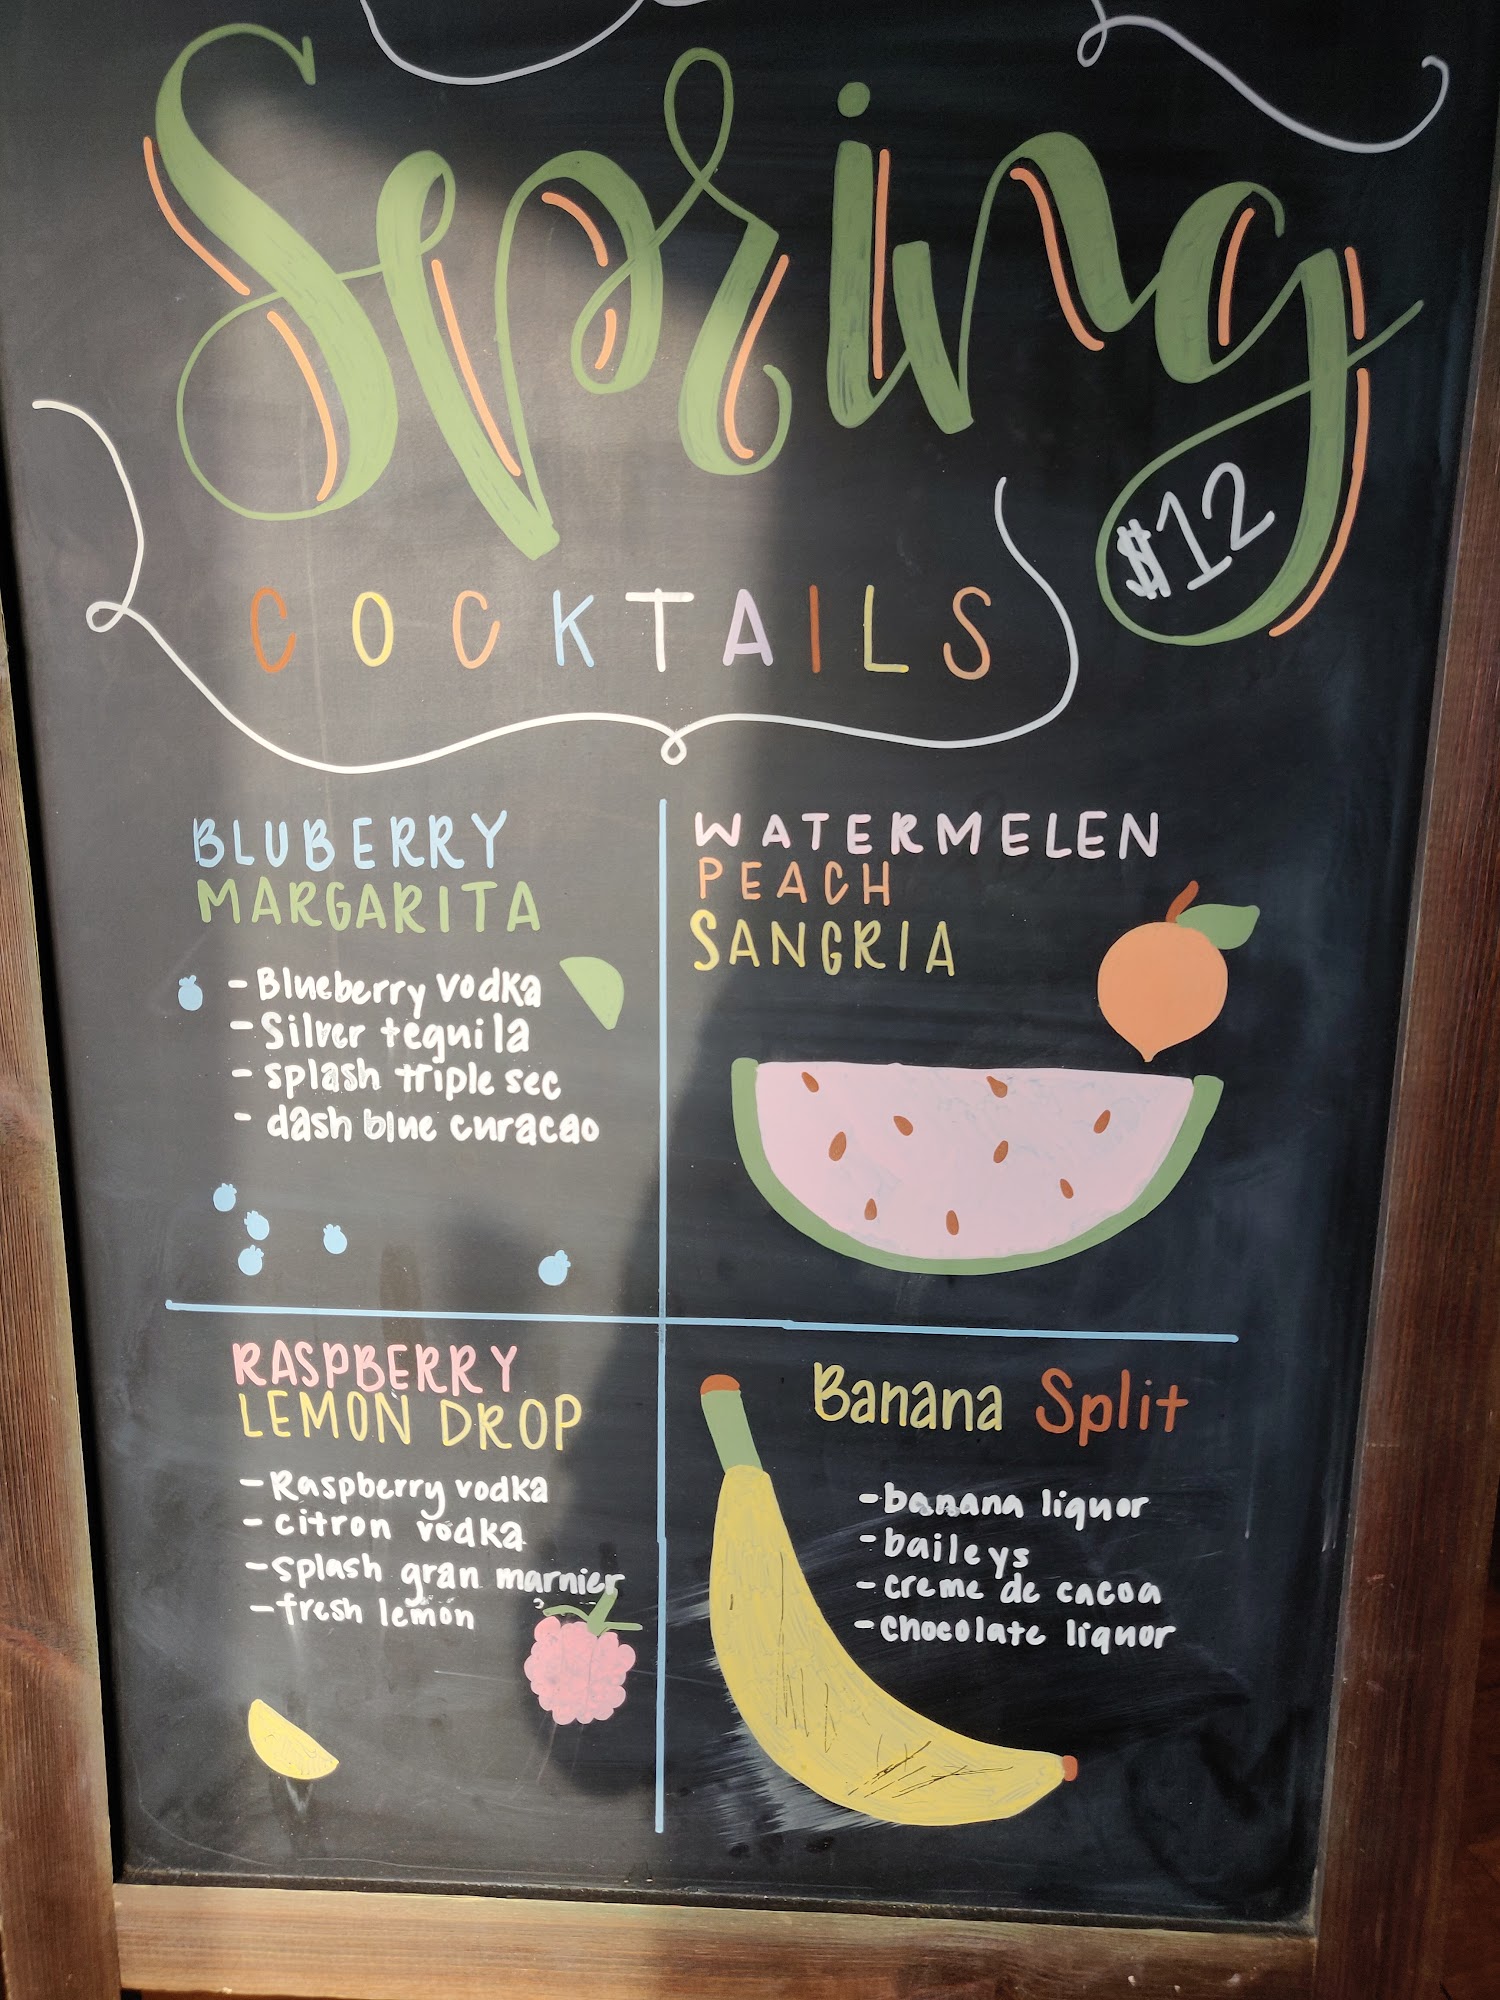 Spring
$12
COCKTAILS
BLUBERRY
MARGARITA
- Blueberry vodka
- Silver tequila
- splash triple sec
- dash blue curacao
WATERMELEN
PEACH
SANGRIA
RASPBERRY
LEMON DROP
- Raspberry vodka
- citron vodka
- splash gran marnier
- fresh lemon
Banana Split
- banana liquor
- baileys
- creme de cacoa
- chocolate liquor